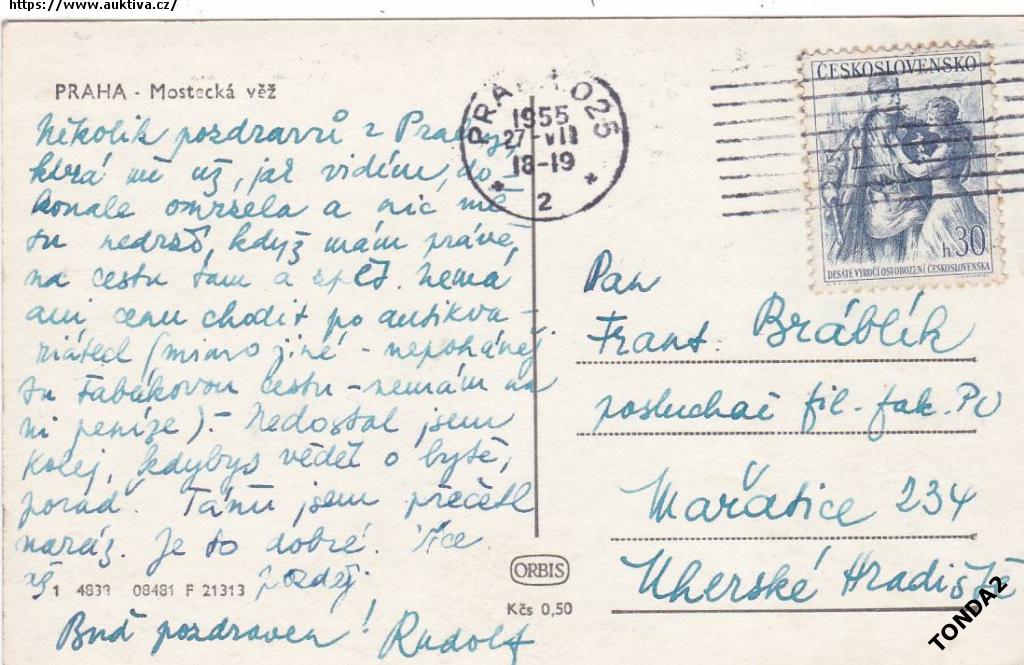 https://www.auktiva.cz/
PRAHA - Mostecká věž
Několik pozdravů z Prahy,
která mě už, jak vidím, do-
konale omrzela a nic mě
tu nedrží, když mám právě
na cestu tam a zpět. Nemá
ani cenu chodit po antikva-
riátech (mimo jiné - nepoháněj
tu Tabákovou cestu - nemám na
ni peníze). - Nedostal jsem
kolej, kdybys věděl o bytě,
poraď. Táňu jsem přečetl
naráz. Je to dobré. Více
později.
Buď pozdraven! Rudolf
1 4833 08481 F 21313
PRAHA 025
1955
27-VII
18-19
* 2 *
ČESKOSLOVENSKO
h 30
DESÁTÉ VÝROČÍ OSVOBOZENÍ ČESKOSLOVENSKA
Pan
Frant. Bráblík
posluchač fil. fak. PU
Mařatice 234
Uherské Hradiště
ORBIS
Kčs 0,50
TONDA2